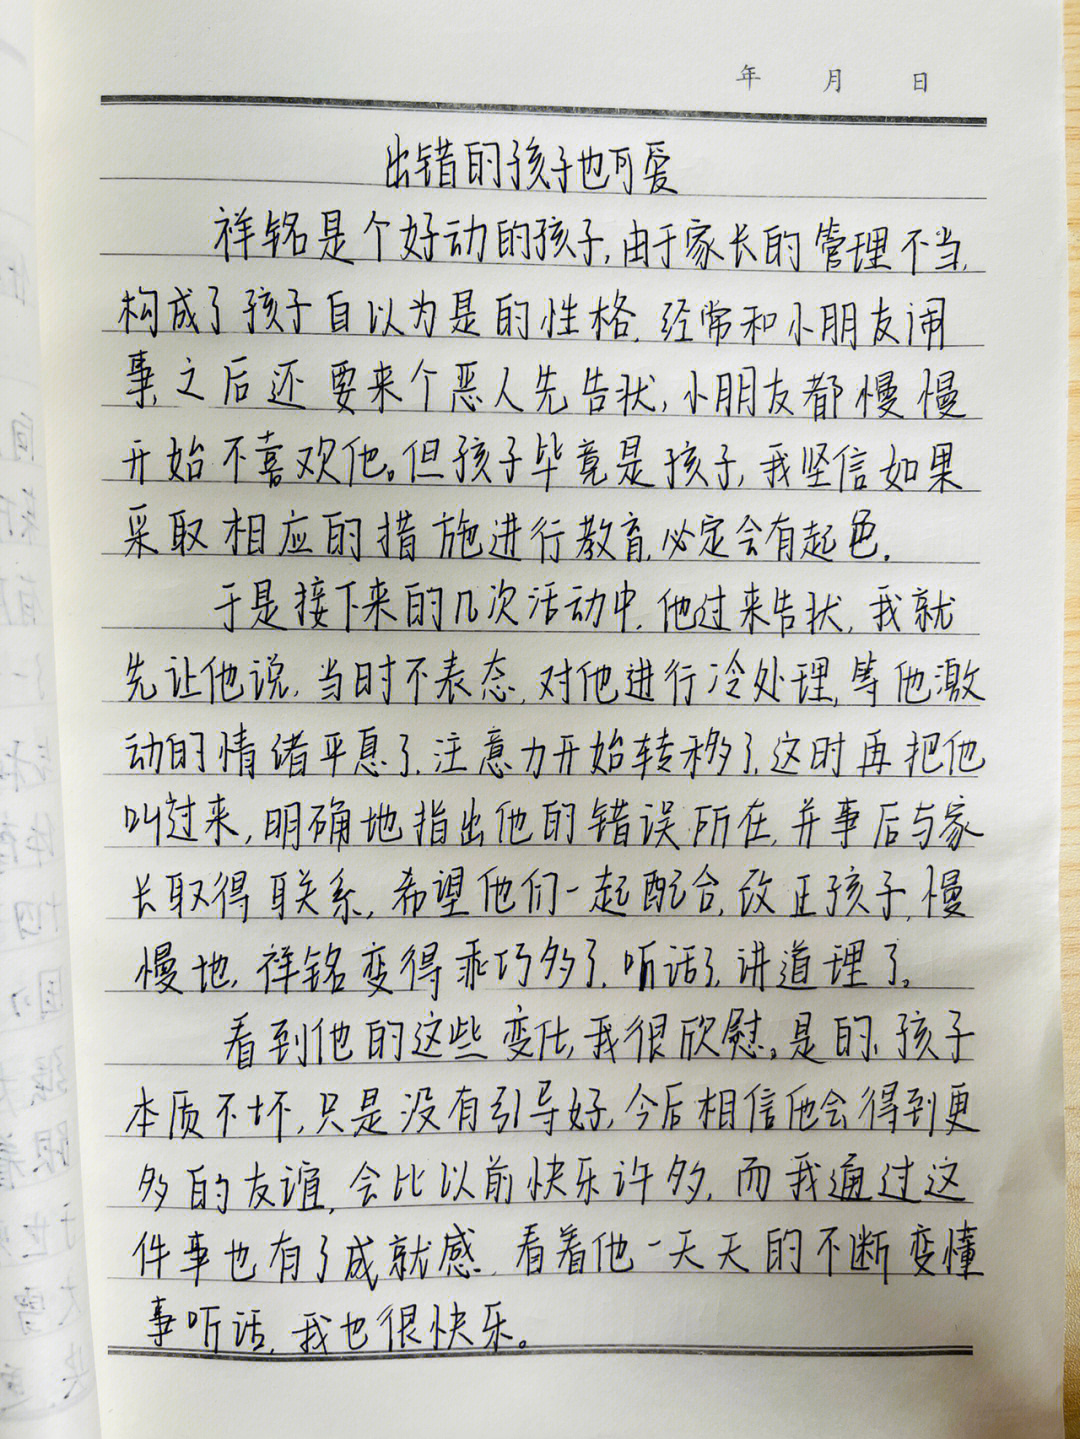 年 月 日
出错的孩子也可爱
祥铭是个好动的孩子,由于家长的管理不当,
构成了孩子自以为是的性格,经常和小朋友闹
事,之后还要来个恶人先告状,小朋友都慢慢
开始不喜欢他。但孩子毕竟是孩子,我坚信如果
采取相应的措施进行教育,必定会有起色.
于是接下来的几次活动中,他过来告状,我就
先让他说,当时不表态,对他进行冷处理,等他激
动的情绪平息了,注意力开始转移了,这时再把他
叫过来,明确地指出他的错误所在,并事后与家
长取得联系,希望他们一起配合,改正孩子,慢
慢地,祥铭变得乖巧多了,听话了,讲道理了。
看到他的这些变化,我很欣慰。是的,孩子
本质不坏,只是没有引导好,今后相信他会得到更
多的友谊,会比以前快乐许多,而我通过这
件事也有了成就感,看着他一天天的不断变懂
事听话,我也很快乐。